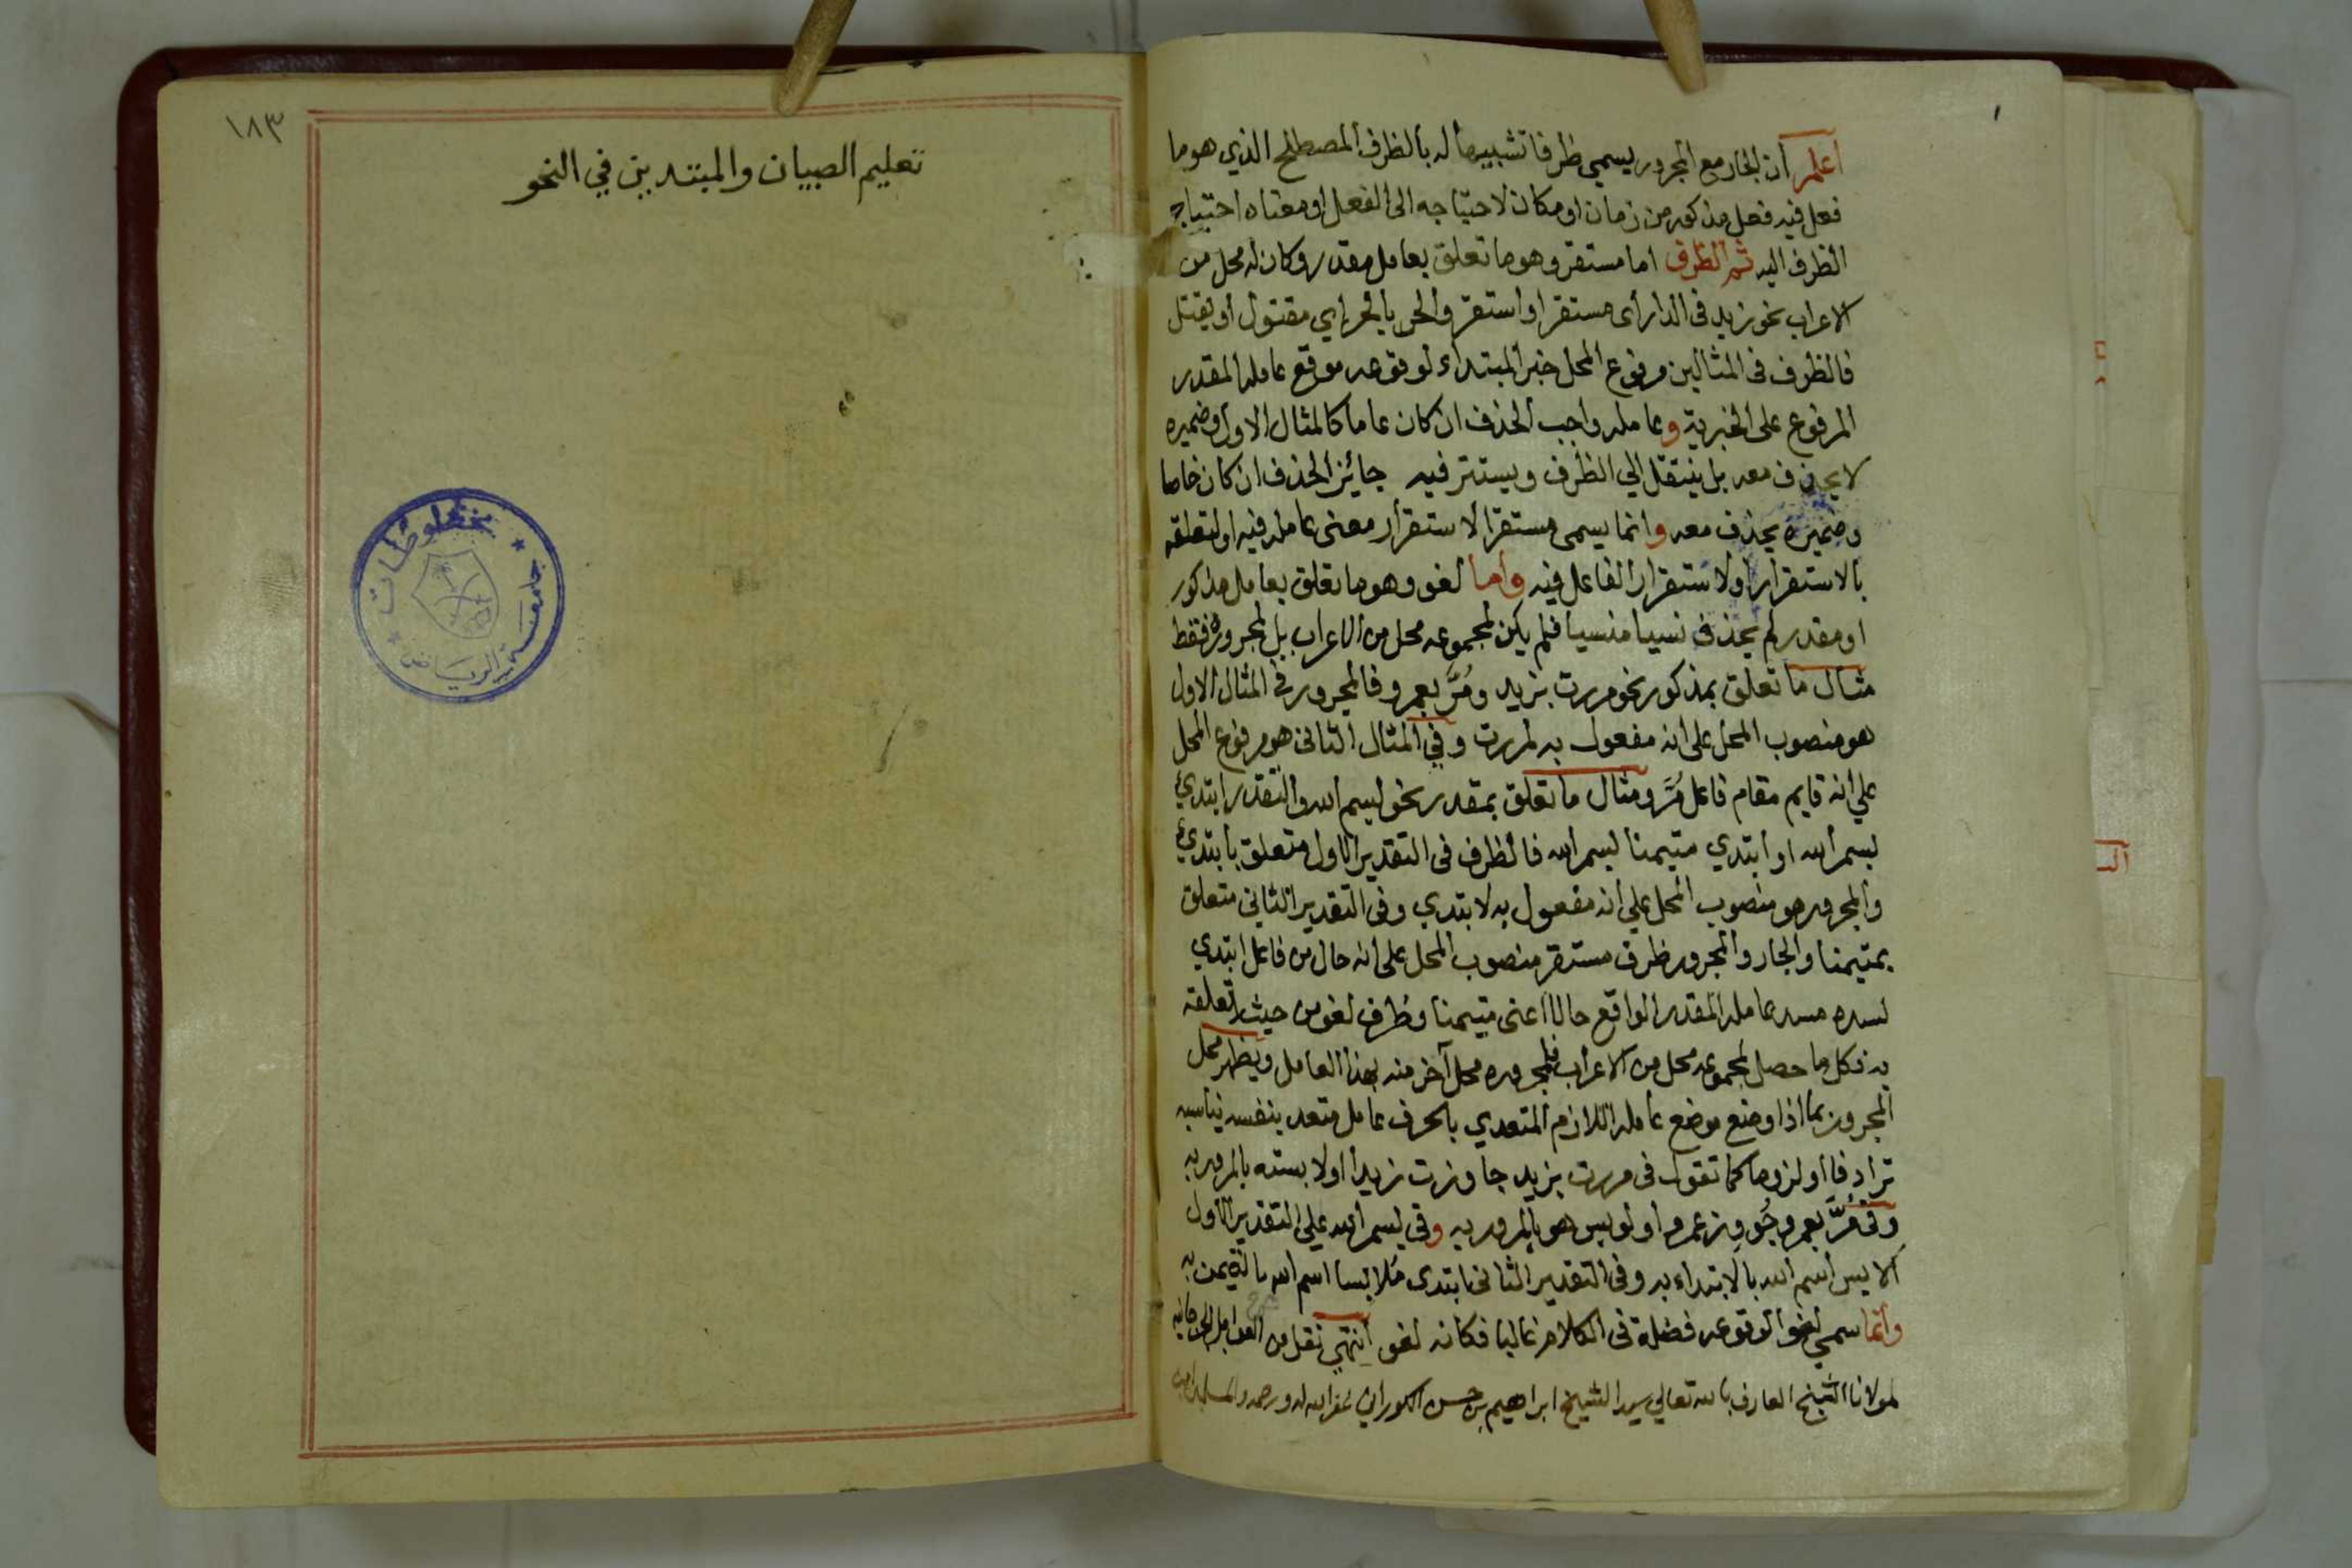 ١
اعلم أن الجار مع المجرور يسمي ظرفا تشبيها له بالظرف المصطلح الذي هو ما
فعل فيه فعل مذكور من زمان او مكان لاحتياجه الى الفعل او معناه احتياج
الظرف اليه ثم الظرف اما مستقر وهو ما تعلق بعامل مقدر وكان له محل من
الاعراب نحو زيد في الدار أى مستقر او استقر والحر بالحر إي مقتول أو يقتل
فالظرف فى المثالين مرفوع المحل خبر المبتداء لوقوعه موقع عامله المقدر
المرفوع على الخبرية وعامله واجب الحذف ان كان عاما كالمثال الاول وضميره
لا يحذف معه بل ينتقل الي الظرف ويستتر فيه جائز الحذف ان كان خاصا
وضميره يحذف معه وانما يسمى مستقرا لاستقرار معنى عامله فيه او لتعلقه
بالاستقرار او لاستقرار الفاعل فيه وأما لغو وهو ما تعلق بعامل مذكور
او مقدر لم يحذف نسيا منسيا فلم يكن لمجموعه محل من الاعراب بل لمجروره فقط
مثال ما تعلق بمذكور نحو مررت بزيد ومُرَّ بعمرو فالمجرور في المثال الاول
هو منصوب المحل على انه مفعول به لمررت وفي المثال الثانى هو مرفوع المحل
علي انه قايم مقام فاعل مُرَّ ومثال ما تعلق بمقدر نحو بسم الله والتقدير ابتدئ
بسم الله او ابتدي متيمنا بسم الله فالظرف فى التقدير الاول متعلق بابتدئ
والمجرور هو منصوب المحل علي انه مفعول به لابتدي وفى التقدير الثاني متعلق
بمتيمنا والجار والمجرور ظرف مستقر منصوب المحل على انه حال من فاعل ابتدي
لسده مسد عامله المقدر الواقع حالا اعنى متيمنا وظرف لغو من حيث تعلقه
به فكل ما حصل لمجموعه محل من الاعراب فلمجروره محل آخر منه بهذا العامل ويظهر محل
المجرور بما اذا وضع موضع عامله اللازم المتعدي بالحرف عامل متعد بنفسه يناسبه
ترادفا أو لزوما كما تقول فى مررت بزيد جاوزت زيدا او لابسته بالمرور به
وفى مُرَّ بعمرو جُوِز عمرو او لوبس هو بالمرور به وفي بسم الله علي التقدير الاول
الابس اسم الله بالابتداء به وفى التقدير الثانى ابتدى مُلابسا اسم الله بالتيمن به
وأنما سمي لغوا لوقوعه فضلة فى الكلام غالبا فكانه لغو انتهي نقل من العوامل الجرجانيه
لمولانا الشيخ العارف بالله تعالي سيد الشيخ ابراهيم بن حسن الكوراني غفر الله له ورحمه
١٨٣
تعليم الصبيان والمبتدين في النحو
مخطوطات
جامعة الرياض